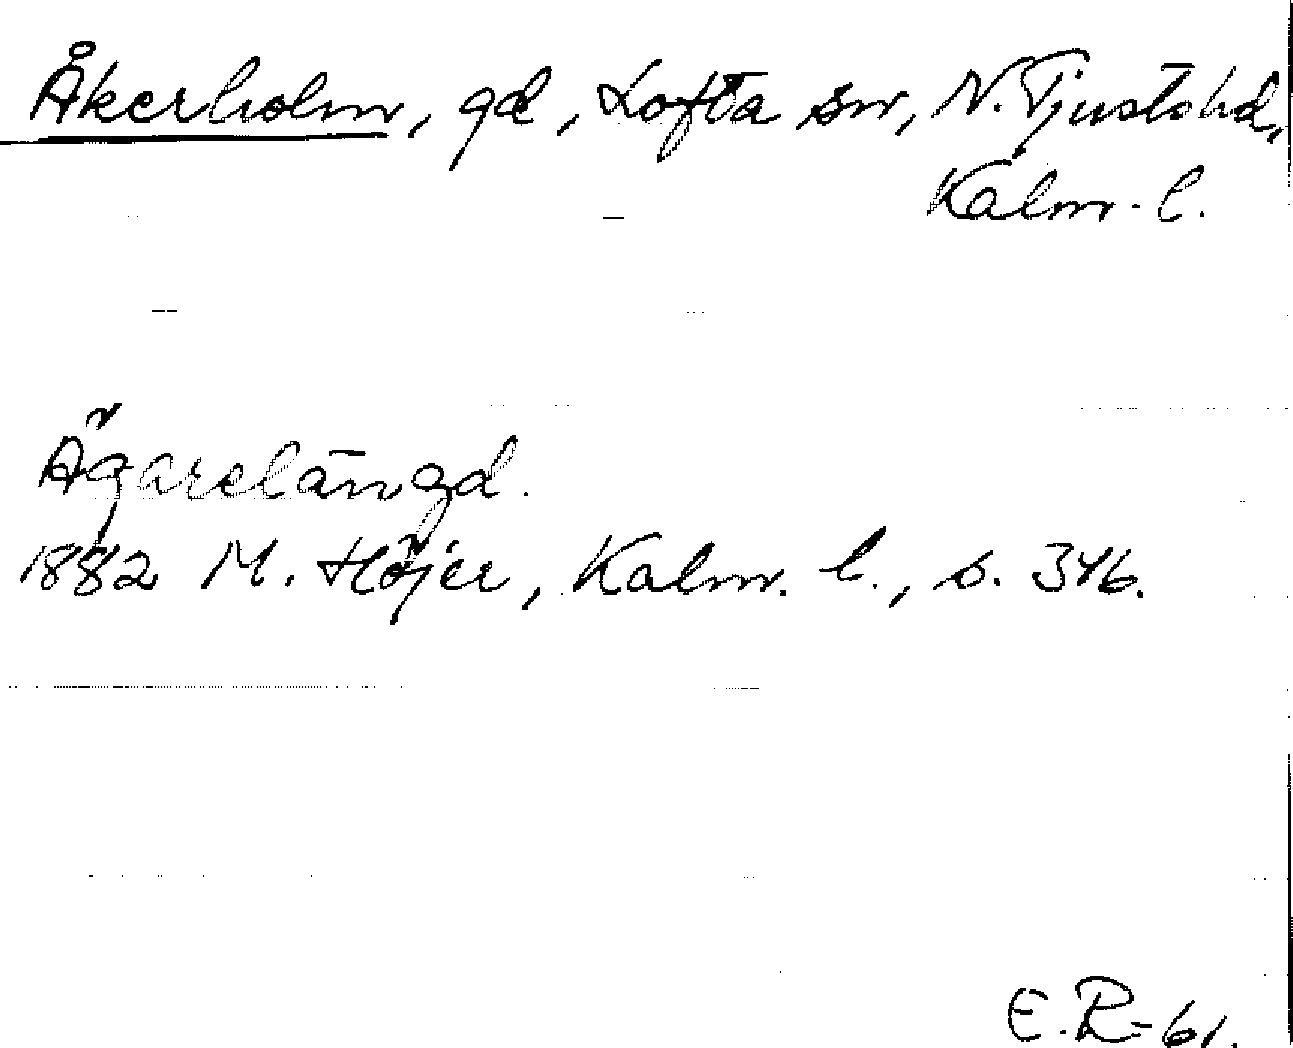 Åkerholm, gd, Lofta sn, N. Tjusts hd,
Kalm. l.
Ägarelängd.
1882 M. Höjer, Kalm. l., s. 346.
E.R-61.